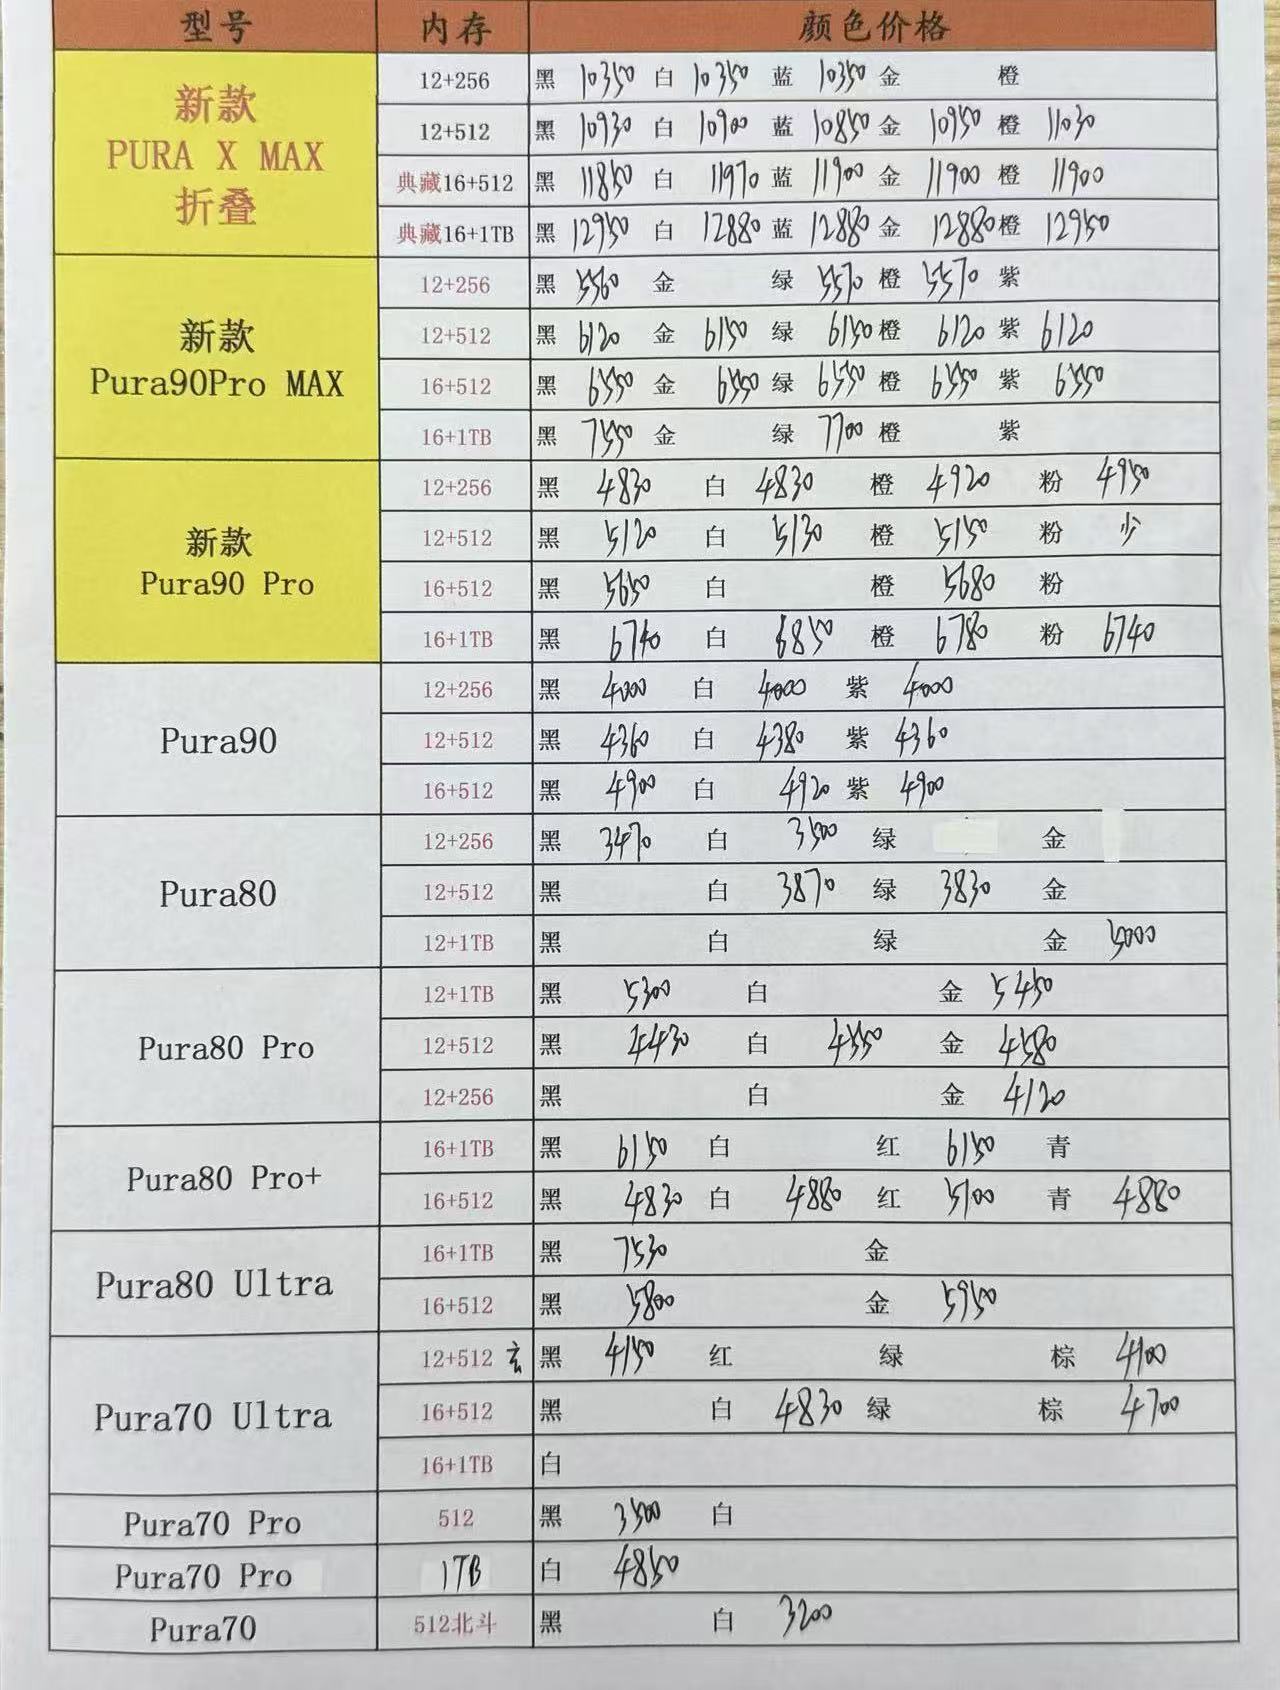 型号 内存 颜色价格
新款 PURA X MAX 折叠
12+256 黑 10350 白 10350 蓝 10350 金 橙
12+512 黑 10930 白 10900 蓝 10850 金 10950 橙 11030
典藏16+512 黑 11850 白 11970 蓝 11900 金 11900 橙 11900
典藏16+1TB 黑 12950 白 12880 蓝 12880 金 12880 橙 12950
新款 Pura90Pro MAX
12+256 黑 5560 金 绿 5570 橙 5570 紫
12+512 黑 6120 金 6150 绿 6150 橙 6120 紫 6120
16+512 黑 6550 金 6550 绿 6550 橙 6550 紫 6550
16+1TB 黑 7550 金 绿 7700 橙 紫
新款 Pura90 Pro
12+256 黑 4830 白 4830 橙 4920 粉 4950
12+512 黑 5120 白 5130 橙 5150 粉 少
16+512 黑 5650 白 橙 5680 粉
16+1TB 黑 6740 白 6850 橙 6780 粉 6740
Pura90
12+256 黑 4000 白 4000 紫 4000
12+512 黑 4360 白 4380 紫 4360
16+512 黑 4900 白 4920 紫 4900
Pura80
12+256 黑 3470 白 3500 绿 金
12+512 黑 白 3870 绿 3830 金
12+1TB 黑 白 绿 金 5000
Pura80 Pro
12+1TB 黑 5300 白 金 5450
12+512 黑 4430 白 4550 金 4580
12+256 黑 白 金 4120
Pura80 Pro+
16+1TB 黑 6150 白 红 6150 青
16+512 黑 4830 白 4880 红 5100 青 4880
Pura80 Ultra
16+1TB 黑 7530 金
16+512 黑 5800 金 5950
Pura70 Ultra
12+512 玄 黑 4150 红 绿 棕 4100
16+512 黑 白 4830 绿 棕 4700
16+1TB 白
Pura70 Pro 512 黑 3500 白
Pura70 Pro 1TB 白 4850
Pura70 512北斗 黑 白 3200